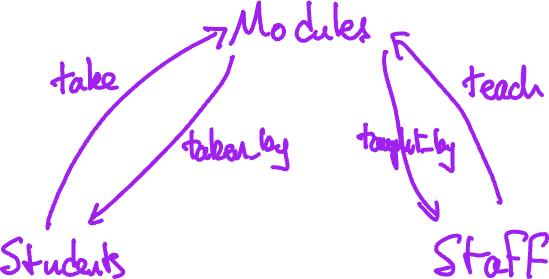 Modules
take
teach
taken_by
taught_by
Students
Staff